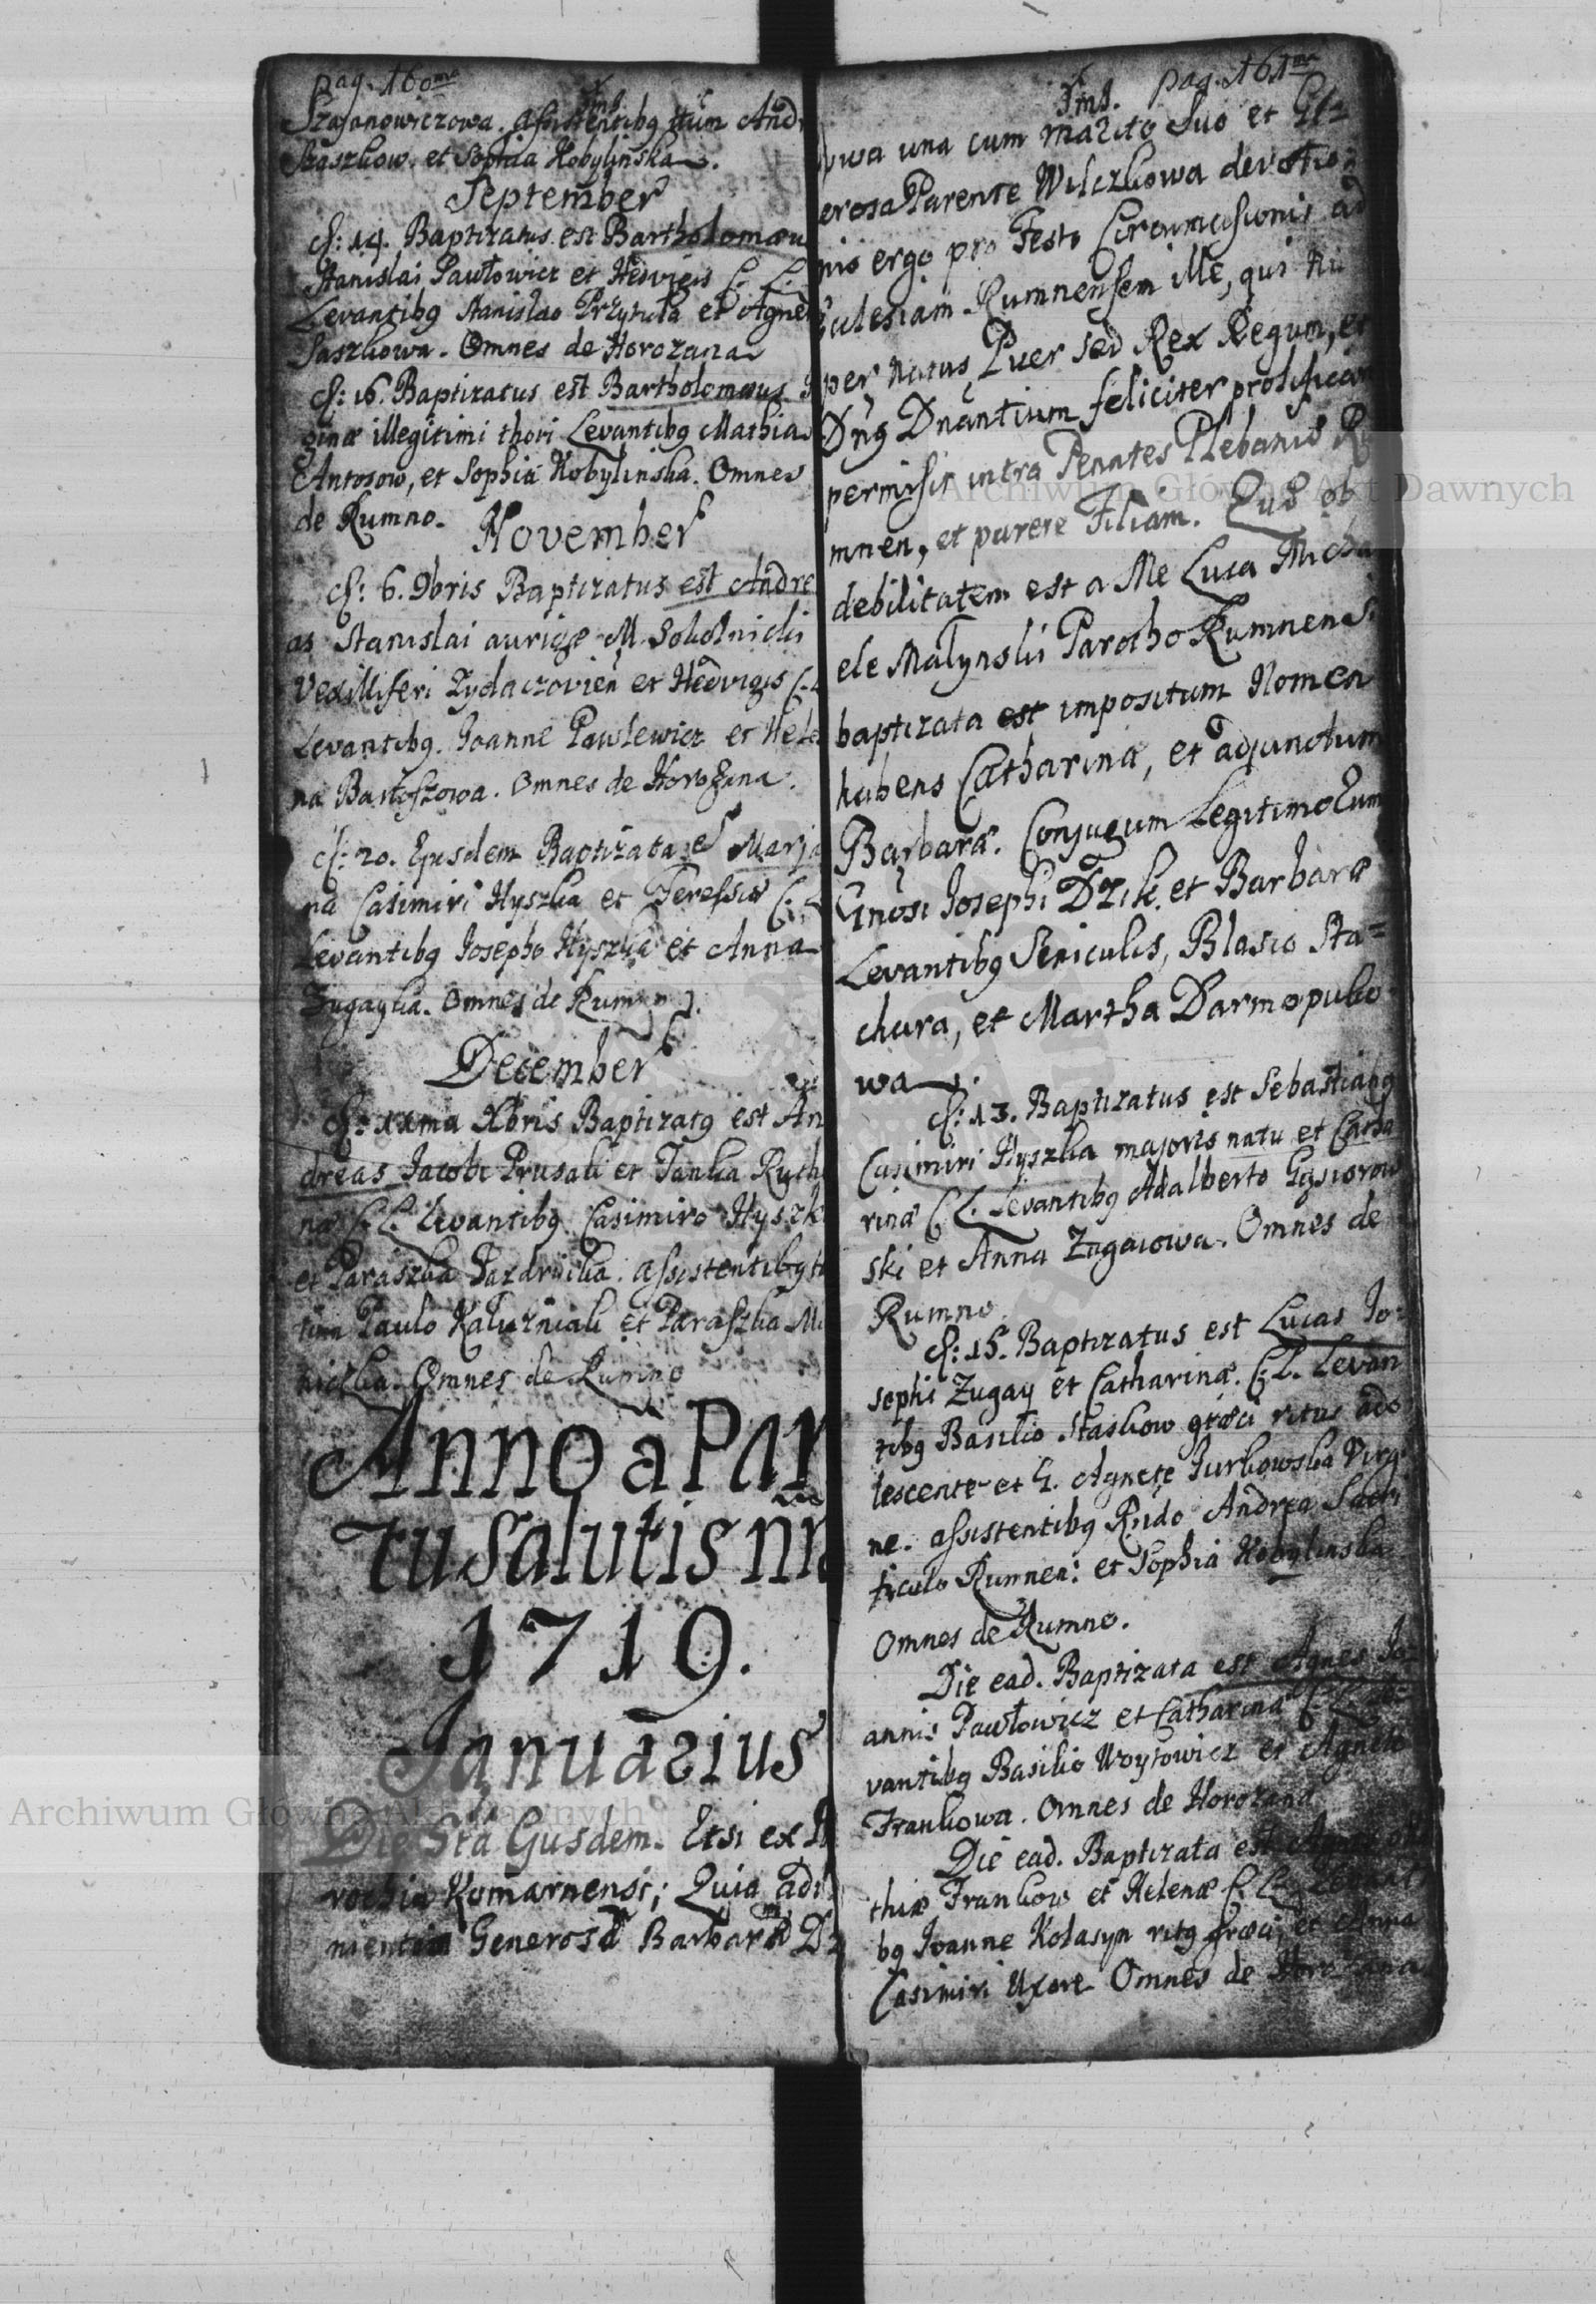 pag. 160ma
Szajanowiczowa. assistentibg itum Andr
Staszkow. et Sophia Kobylinska.
September
d: 14. Baptizatus est Bartholomæu
Stanislai Pawłowicz et Hedvigis C. L.
Levantibg Stanislao Przytuła et Agne
Saszkowa. Omnes de Horozana
d: 16. Baptizatus est Bartholomæus
ginæ illegitimi thori Levantibg Mathia
Antosow, et Sophia Kobylinska. Omnes
de Rumno.
November
d: 6. 9bris Baptizatus est Andre
as Stanislai aurigæ M. Sokolnicki
Vexilliferi Zydaczovien et Hedvigis C. L
Levantibg. Joanne Pawlewicz et Hele
na Bartoszowa. Omnes de Horozana.
d: 20. Ejusdem Baptizata e Marja
na Casimiri Hyszka et Theressiæ C. L
Levantibg Josepho Hyszka et Anna
Zugayka. Omnes de Rumn
December
d: xxma Xbris Baptizatg est An
dreas Jacobi Prusak et Tanka Ruth
næ C. L. Levantibg Casimiro Hyszk
et Paraszka Jazdrucka. assistentibg
Paulo Kałuzniak et Paraszka
Omnes de Rumno
Anno à Par
tu salutis nræ
1719.
Januarius
Die 1sta Ejusdem. Etsi ex P
rochia Komarnensi; Quia adv
nientem Generosa Barbara Dz
pag. 161ma
owa una cum marito Suo et Ge=
erosa Parente Wilczkowa devotio
nis ergo pro Festo Circumcisionis ad
Eclesiam Rumnensem ille, qui nu
per natus Puer sed Rex Regum, et
Dng Dnantium feliciter prolificar
permisit intra Penates Plebanis Ru
mnen, et parere Filiam. Quæ ob
debilitatem est a Me Luca Micha
ele Małynski Parocho Rumnensi
baptizata est impositum Nomen
habens Catharina, et adjunctum
Barbara. Conjugum Legitimorum
Gnosi Josephi Dzik et Barbaræ
Levantibg Seniculis, Blasio Sta=
chura, et Martha Darmopulko
wa.
d: 13. Baptizatus est Sebastiang
Casimiri Hyszka majoris natu et Catha
rinæ C. L. Levantibg Adalberto Gąsiorow
ski et Anna Zugaiowa. Omnes de
Rumno
d: 15. Baptizatus est Lucas Jo=
sephi Zugay et Catharinæ. C. L. Levan
tibg Basilio Staskow græci ritus ado
lescente et G. Agnete Jurkowska Virgi
ne. assistentibg Rndo Andrea Sacri
ficulo Rumnen: et Sophia Kobylinska
Omnes de Rumno.
Die ead. Baptizata est Agnes Jo
annis Pawłowicz et Catharinæ C. L. Le
vantibg Basilio Woytowicz et Agnete
Frankowa. Omnes de Horozana
Die ead. Baptizata est
thiæ Frankow et Helenæ C. L. Levanti
bg Joanne Kolasyn ritg græci, et Anna
Casimiri Uxore Omnes de Horozana
Archiwum Główne Akt Dawnych
Archiwum Główne Akt Dawnych